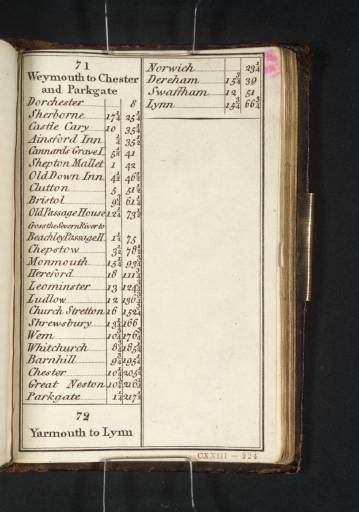 71
Weymouth to Chester
and Parkgate
Dorchester 8
Sherborne 17¼ 25¼
Castle Cary 10 35¼
Ainsford Inn ¼ 35½
Cannards Grave I. 5½ 41
Shepton Mallet 1 42
Old Down Inn 4½ 46½
Clutton 5 51½
Bristol 9¾ 61¼
Old Passage House 12¼ 73½
Cross the Severn River to
Beachley Passage H. 1½ 75
Chepstow 3½ 78½
Monmouth 15¼ 93¾
Hereford 18 111¾
Leominster 13 124¾
Ludlow 12 136¾
Church Stretton 16 152¾
Shrewsbury 13¼ 166
Wem 10¾ 176¾
Whitchurch 8¾ 185½
Barnhill 9¾ 195¼
Chester 10¼ 205½
Great Neston 10¾ 216¼
Parkgate 1¼ 217½
72
Yarmouth to Lynn
Norwich 23¼
Dereham 15¾ 39
Swaffham 12 51
Lynn 15¾ 66¾
CXXIII - 224